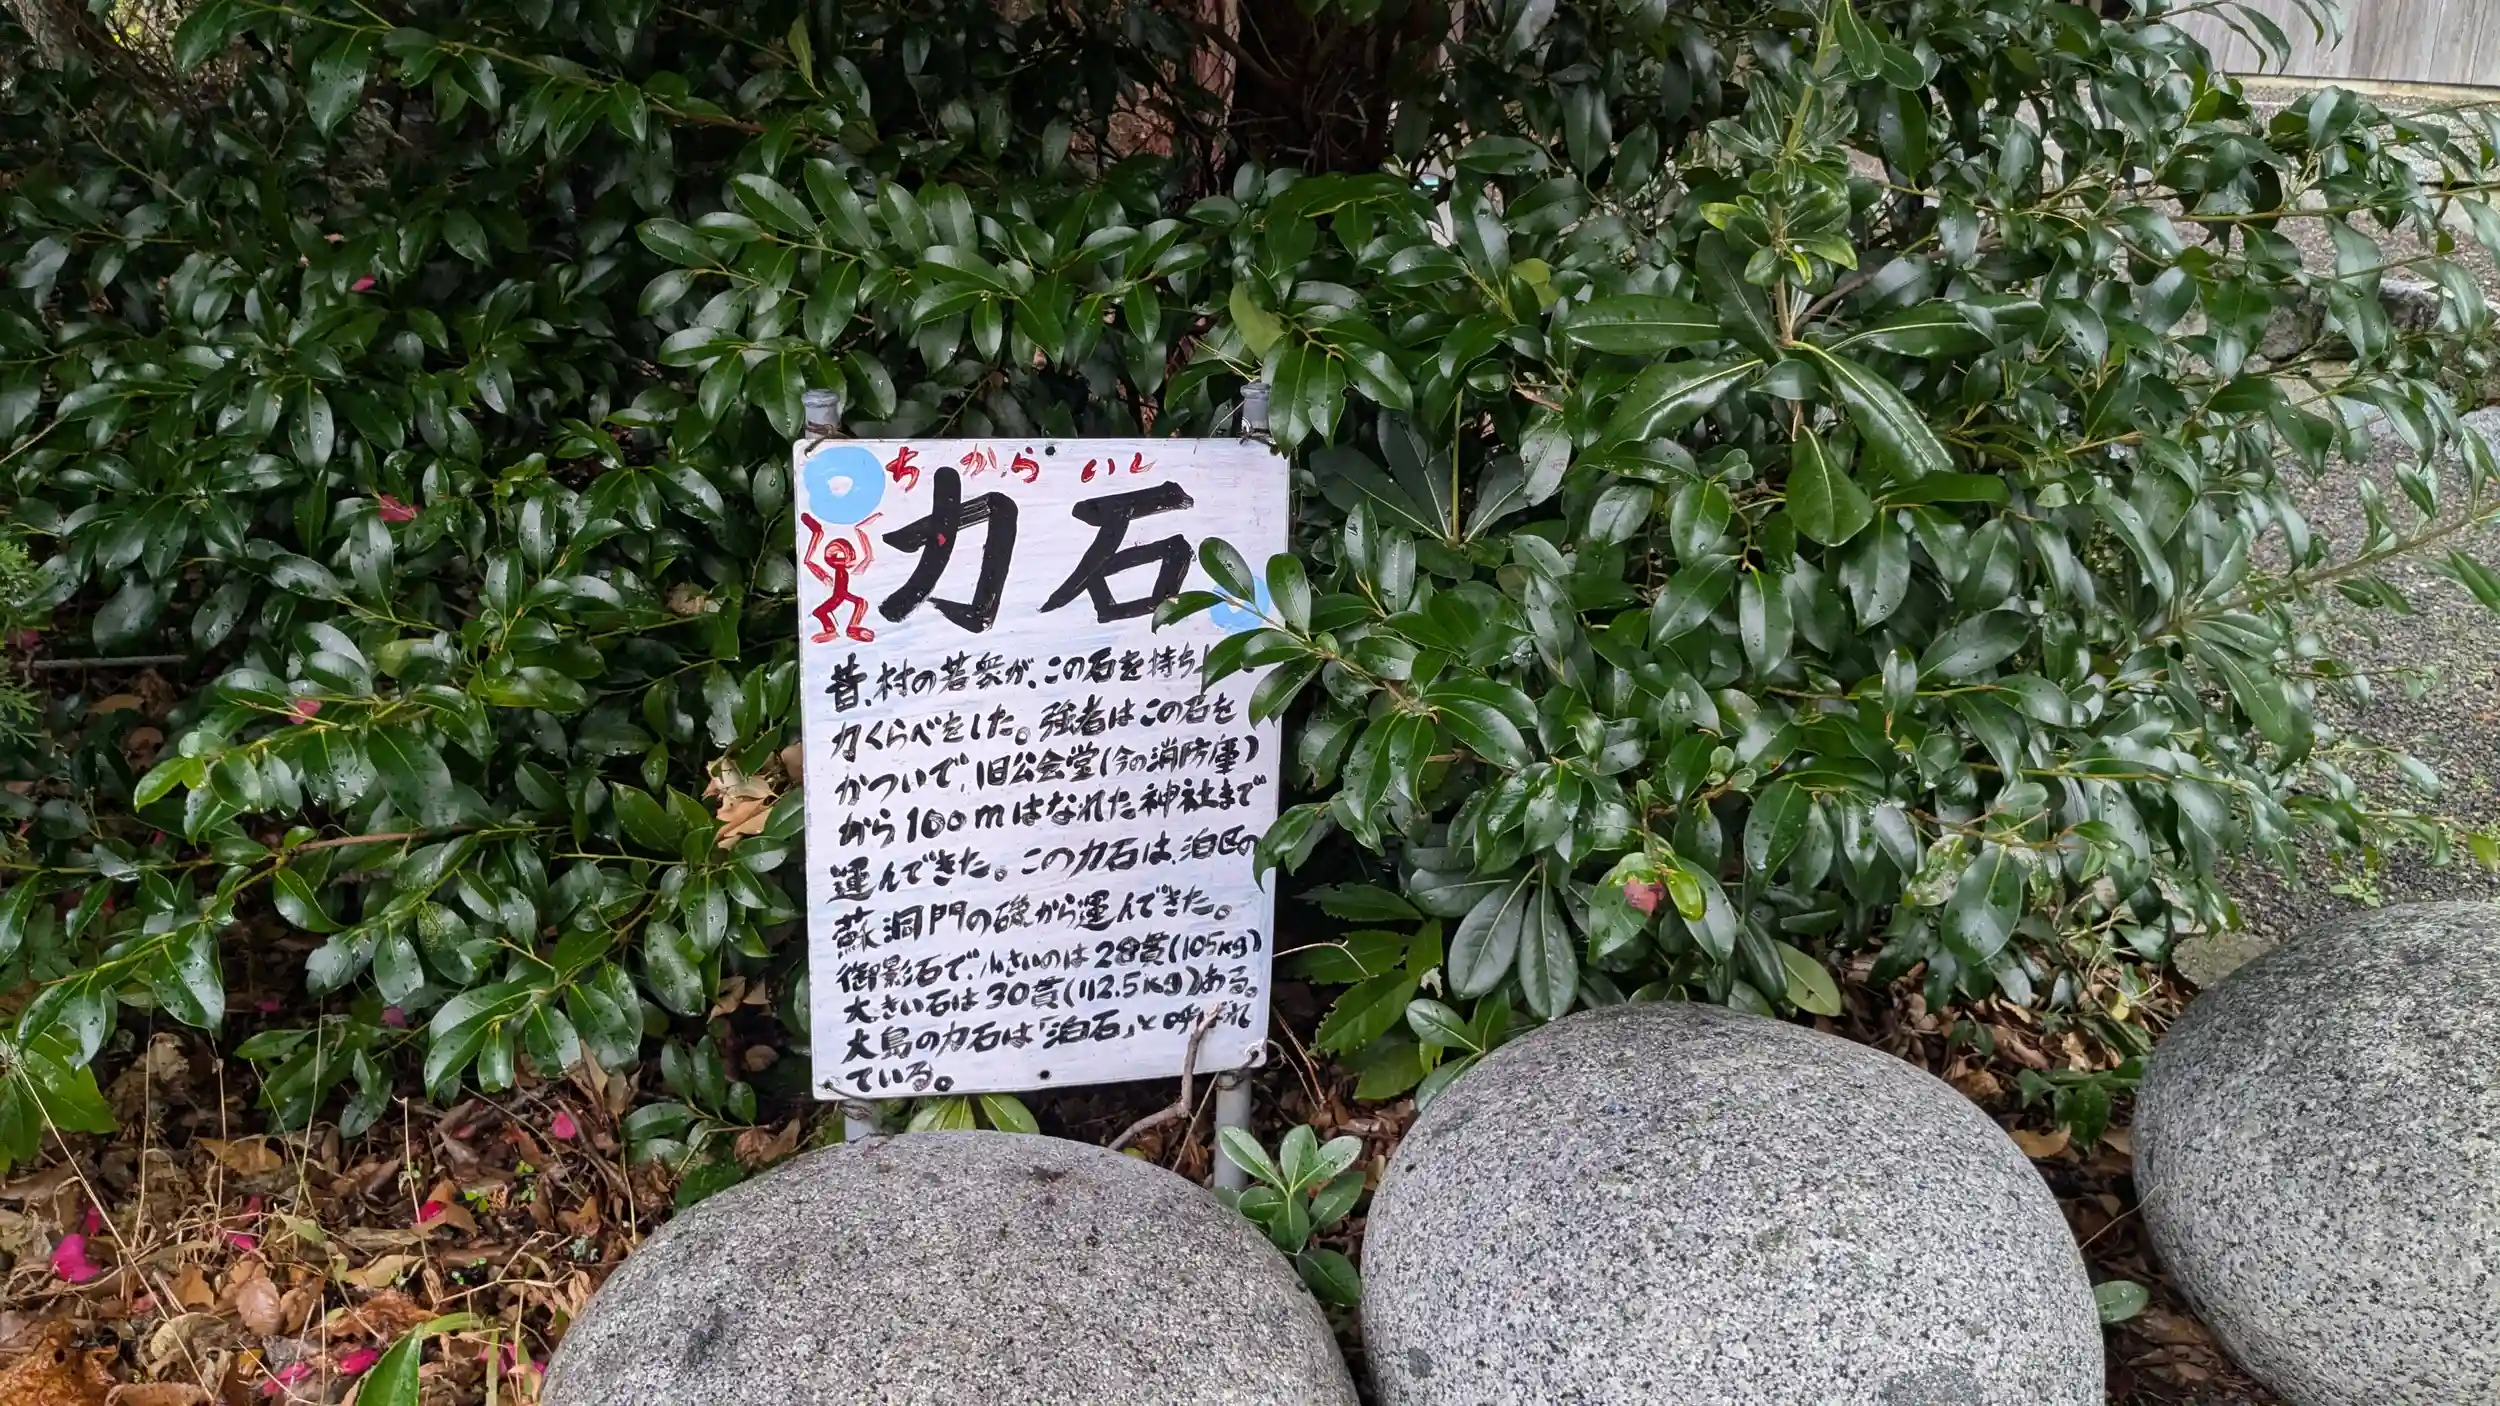 ちからいし
力石
昔、村の若衆が、この石を持ち
力くらべをした。強者はこの石を
かついで、旧公会堂(今の消防庫)
から100mはなれた神社まで
運んできた。この力石は、泊区の
蘇洞門の磯から運んできた。
御影石で、小さいのは28貫(105kg)
大きい石は30貫(112.5kg)ある。
大島の力石は「泊石」と呼ばれ
ている。